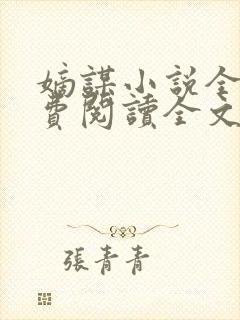 嫡謀小説全
費閱讀全文
張青青